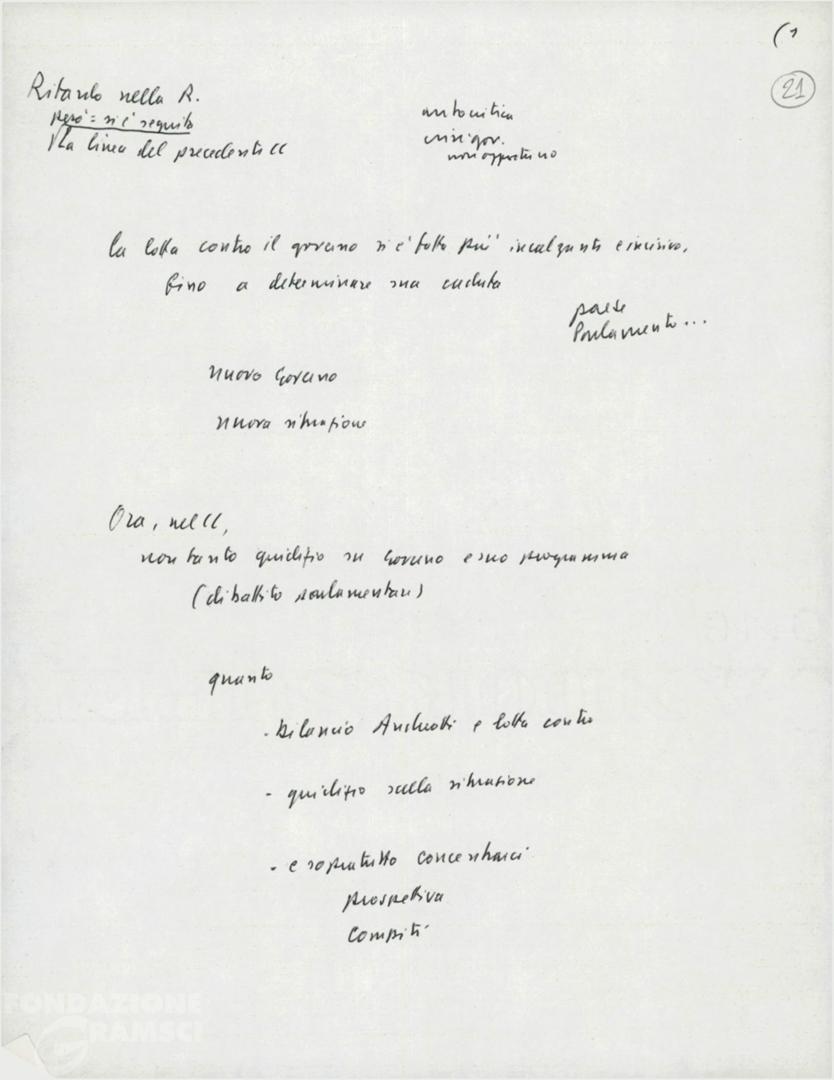 (1
21
Ritardo nella R.
però = si è seguita
la linea del precedente CC
autocritica
crisi gov.
non opportuno
la lotta contro il governo si è fatta più incalzante e incisiva,
fino a determinare sua caduta
paese
Parlamento...
nuovo Governo
nuova situazione
Ora, nel CC,
non tanto giudizio su Governo e suo programma
(dibattito parlamentare)
quanto
- bilancio Andreotti e lotta contro
- giudizio sulla situazione
- e sopratutto concentrarci
prospettiva
compiti
FONDAZIONE
GRAMSCI